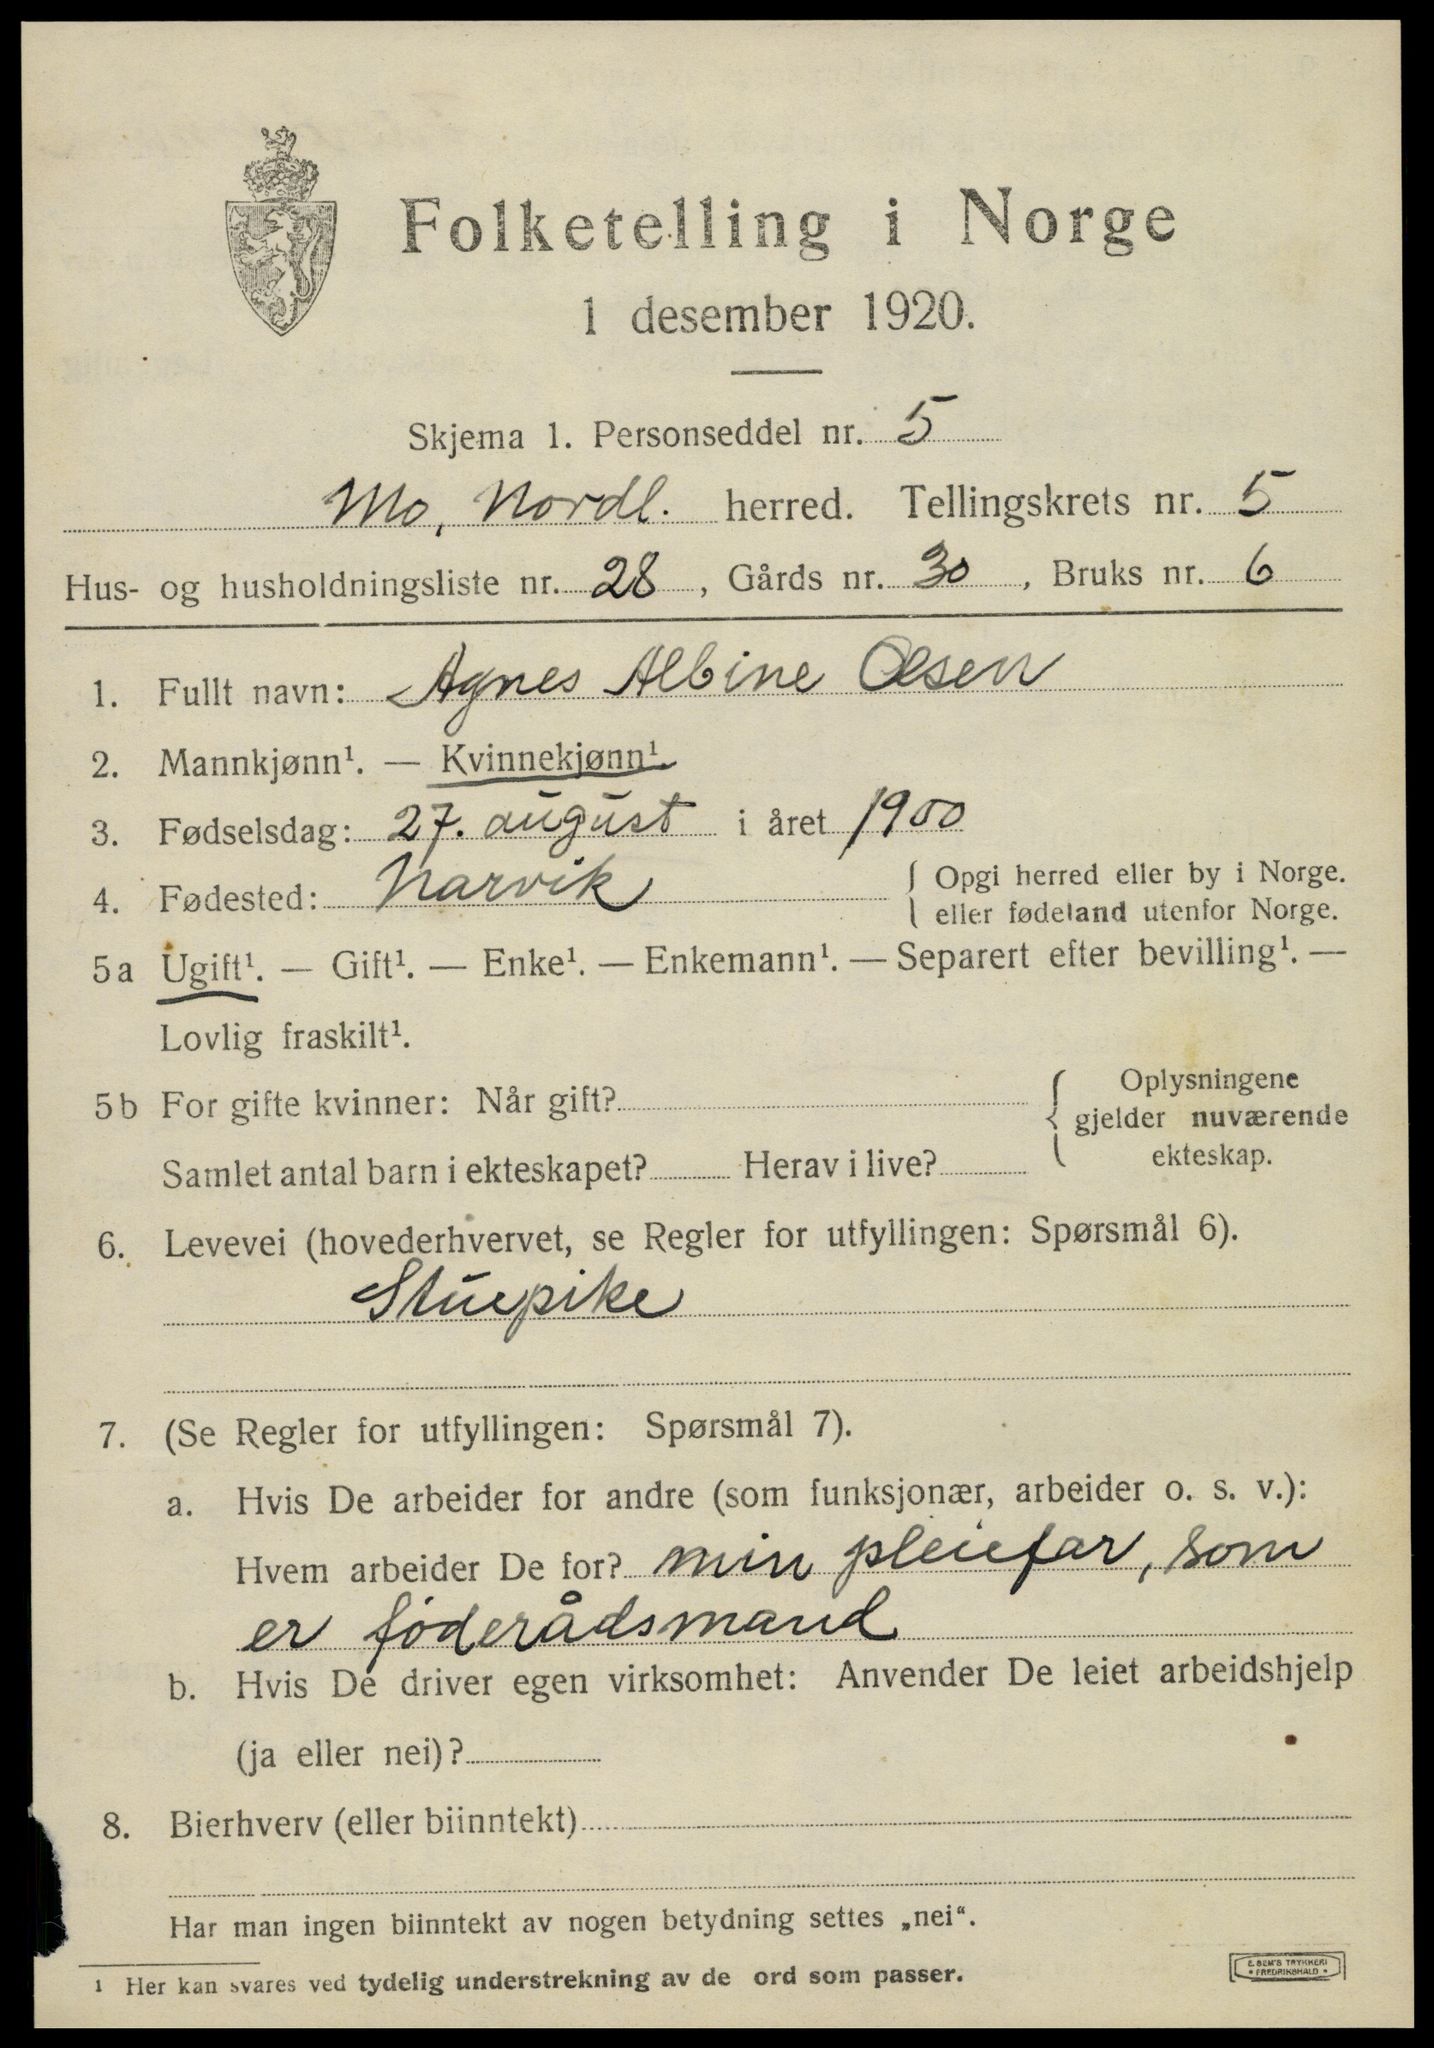 Folketelling i Norge
1 desember 1920.
Skjema 1. Personseddel nr. 5
Mo, Nordl. herred. Tellingskrets nr. 5
Hus- og husholdningsliste nr. 28, Gårds nr. 30, Bruks nr. 6
1. Fullt navn: Agnes Albine Olsen
2. Mannkjønn¹. — Kvinnekjønn¹.
3. Fødselsdag: 27. august i året 1900
4. Fødested: Narvik { Opgi herred eller by i Norge.
eller fødeland utenfor Norge.
5a Ugift¹. — Gift¹. — Enke¹. — Enkemann¹. — Separert efter bevilling¹. —
Lovlig fraskilt¹.
5b For gifte kvinner: Når gift? { Oplysningene
gjelder nuværende
ekteskap.
Samlet antal barn i ekteskapet? Herav i live?
6. Levevei (hovederhvervet, se Regler for utfyllingen: Spørsmål 6).
Stuepike
7. (Se Regler for utfyllingen: Spørsmål 7).
a. Hvis De arbeider for andre (som funksjonær, arbeider o. s. v.):
Hvem arbeider De for? min pleiefar, som
er føderådsmand
b. Hvis De driver egen virksomhet: Anvender De leiet arbeidshjelp
(ja eller nei)?
8. Bierhverv (eller biinntekt)
Har man ingen biinntekt av nogen betydning settes „nei“.
1 Her kan svares ved tydelig understrekning av de ord som passer.
E. SEM'S TRYKKERI
• FREDRIKSHALD •